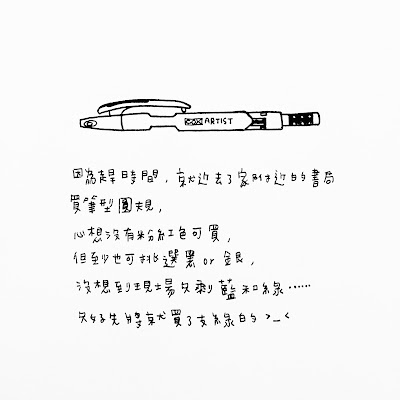 ARTIST
因為趕時間，就近去了家附近的書局
買筆型圓規，
心想沒有粉紅色可買，
但至少也可挑選黑 or 銀，
沒想到現場只剩藍和綠……
只好先將就買了支綠的 >_<